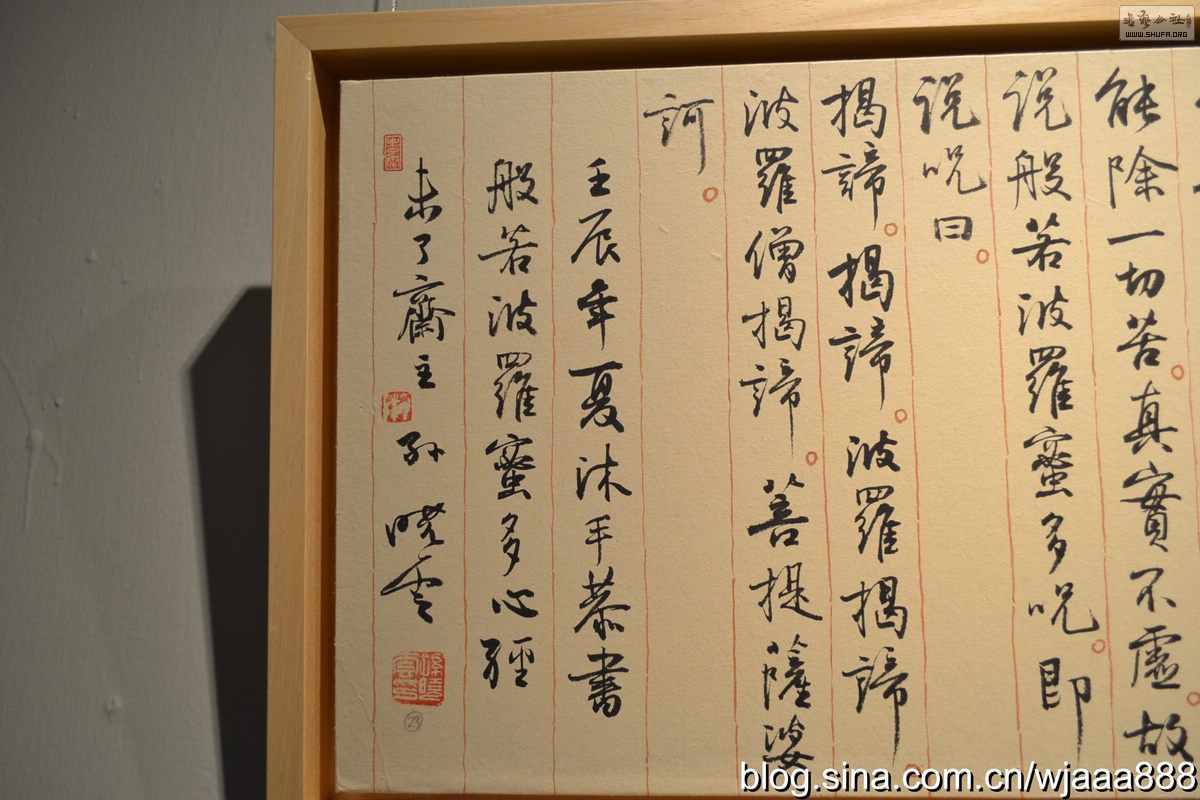 能除一切苦真實不虛故
说般若波羅蜜多呪即
说呪曰
揭諦揭諦波羅揭諦
波羅僧揭諦菩提薩婆
訶
壬辰年夏沐手恭書
般若波羅蜜多心經
未了齋主孫曉雲
23
书艺公社
WWW.SHUFA.ORG
blog.sina.com.cn/wjaaa888